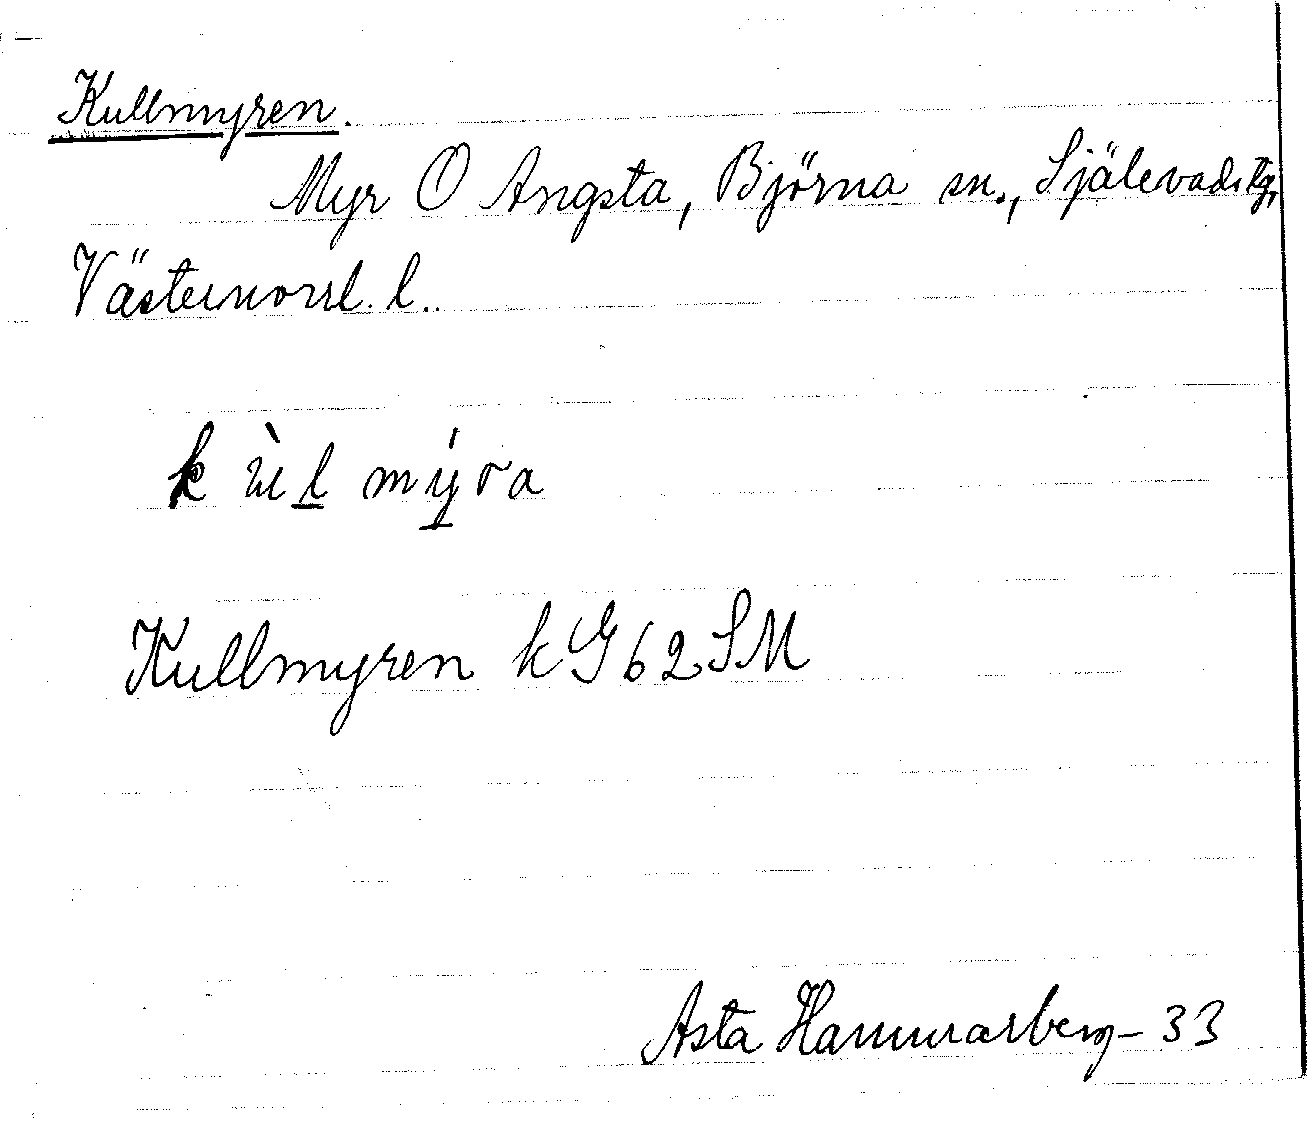 Kullmyren.
Myr O Angsta, Björna sn., Själevads tg,
Västernorrl. l.
k ù l m ý r a
Kullmyren kG62SM
Asta Hammarberg - 33